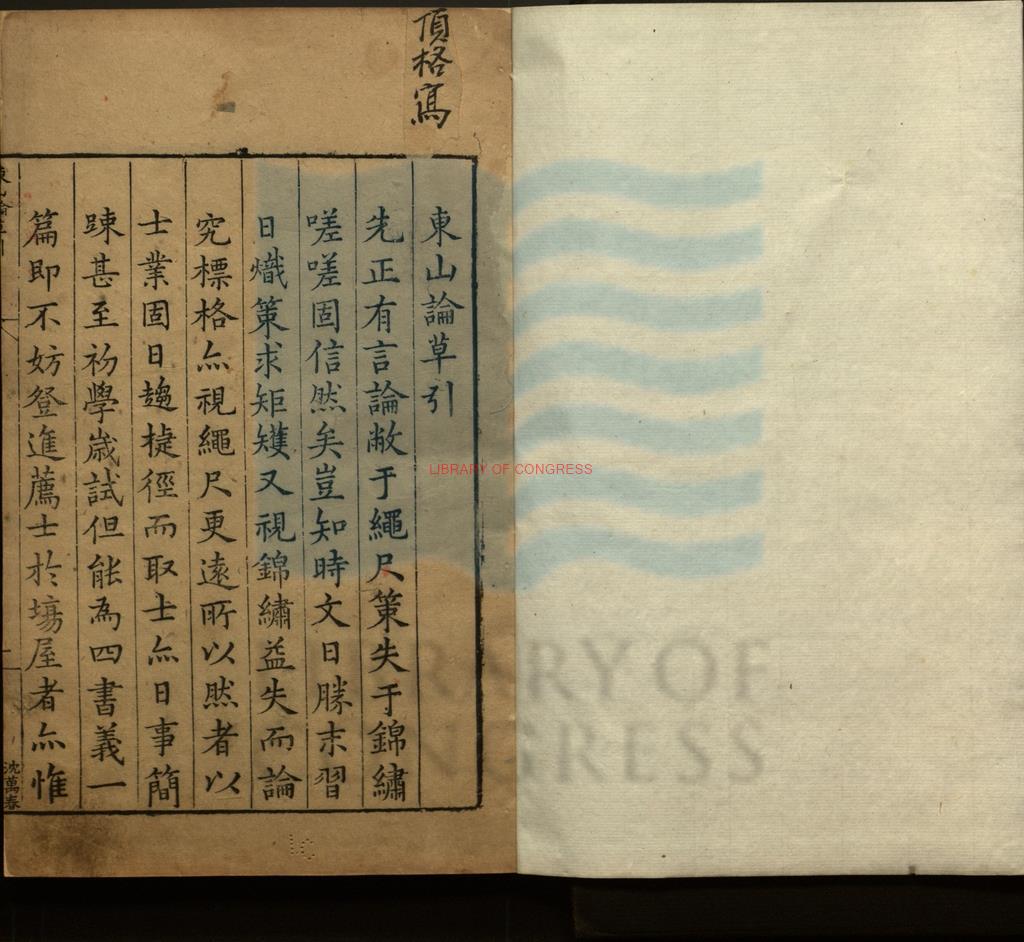 頂格寫
東山論草引
先正有言論敝于繩尺策失于錦繡
嗟嗟固信然矣豈知時文日勝末習
日熾策求矩矱又視錦繡益失而論
究標格亦視繩尺更遠所以然者以
士業固日趨捷徑而取士亦日事簡
踈甚至初學歲試但能為四書義一
篇即不妨登進薦士於塲屋者亦惟
沈萬春
LIBRARY OF CONGRESS
LIBRARY OF
CONGRESS